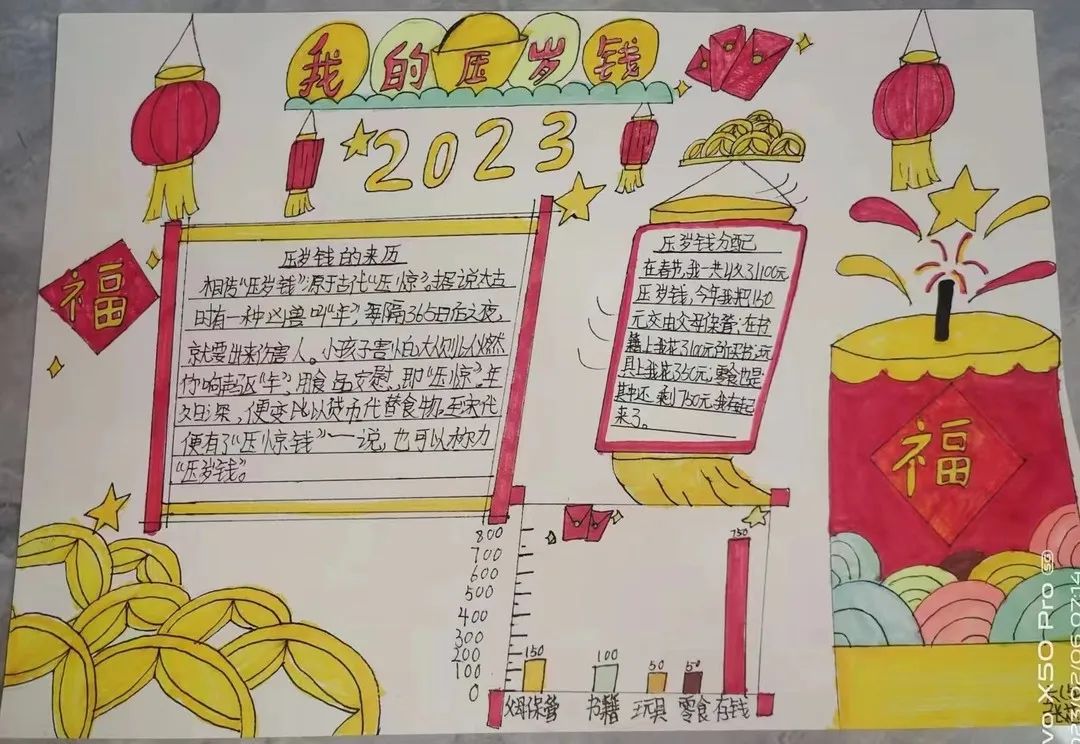 我的压岁钱
2023
福
压岁钱的来历
相传"压岁钱"源于古代"压惊"。据说太古
时有一种凶兽叫"年",每隔365日后之夜,
就要出来伤害人。小孩子害怕,大人则以燃
响声驱"年",用食品安慰,即"压惊"。年
久日深,便变比以货币代替食物,至宋代
便有了"压惊钱"一说,也可以称为
"压岁钱"。
压岁钱分配
在春节,我一共收了1100元
压岁钱,今年我把150
元交由父母保管;在书
籍上我花了100元所买书;玩
具上我花了50元;零食也是
其中还剩750元我存起
来了。
福
800
700
600
500
400
300
200
100
0
150
100
50
50
750
父母保管 书籍 玩具 零食 存钱
vo X50 Pro 5G
023/02/06 07:14